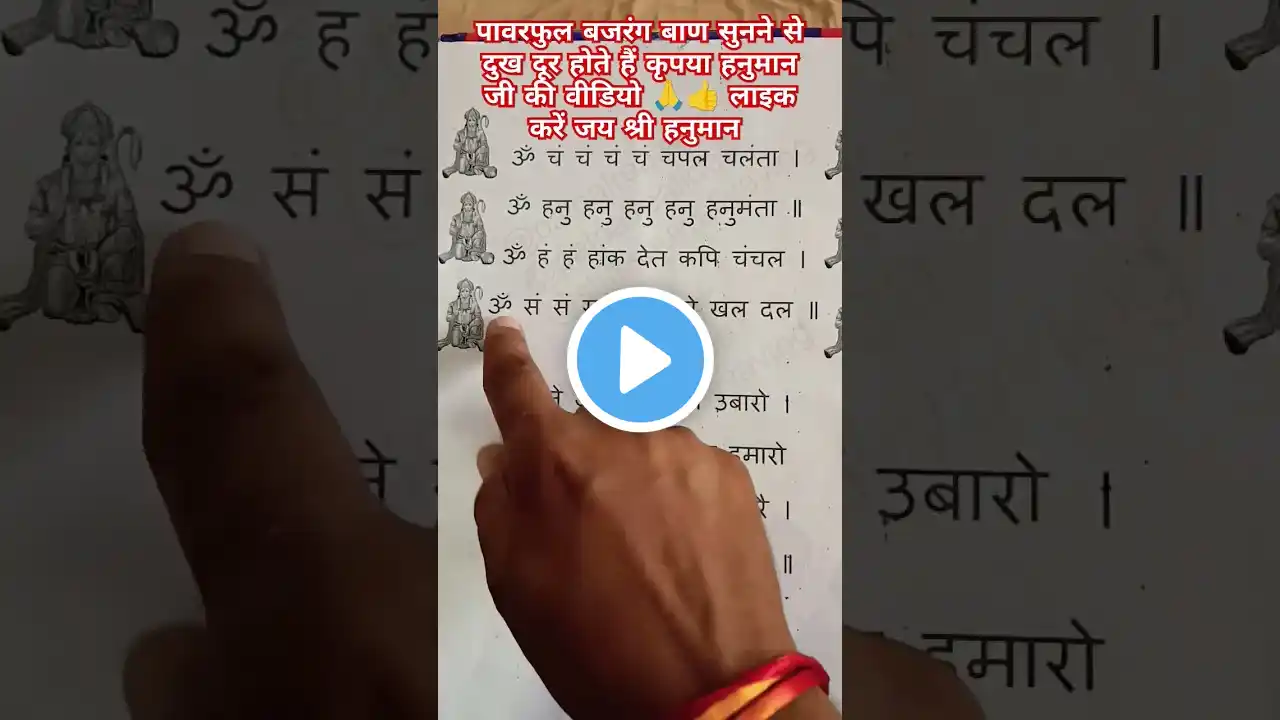 पावरफुल बजरंग बाण सुनने से
दुख दूर होते हैं कृपया हनुमान
जी की वीडियो 🙏👍 लाइक
करें जय श्री हनुमान
ॐ चं चं चं चं चपल चलंता ।
ॐ हनु हनु हनु हनु हनुमंता ॥
ॐ हं हं हांक देत कपि चंचल ।
ॐ सं सं खल दल ॥
उबारो ।
हमारो
।
॥
ॐ ह
चंचल ।
ॐ सं सं
खल दल ॥
उबारो ।
हमारो